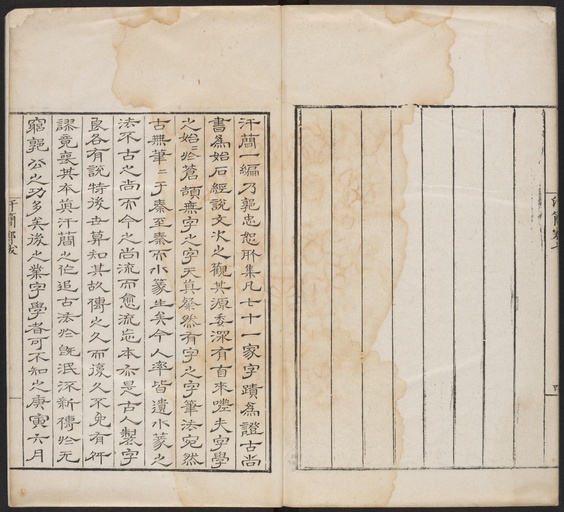 汗簡一編乃郭忠恕所集凡七十一家字蹟為證古尚
書為始石經說文次之觀其源委深有自來嗟夫字學
之始二於蒼頡無字之字天真粲然有字之字筆法宛然
古無筆二于秦至秦而小篆生矣今人率皆遺小篆之
法不古之尚而今之尚流而愈流忘本亦是古人製字
良各有說特後世算知其故傳之久而後久不免有
謬竟喪其本真汗簡之作追古法於既泯添新傳於无
窮郭公之功多矣後之業字學者可不知之庚寅六月
汗簡